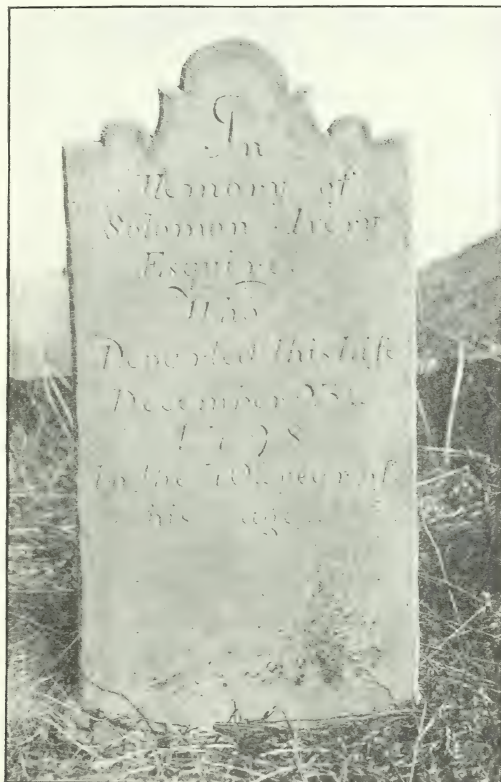 In
Memory of
Solomon Avery
Esquire.
Who
Departed this life
December
1798
in the year of
his age